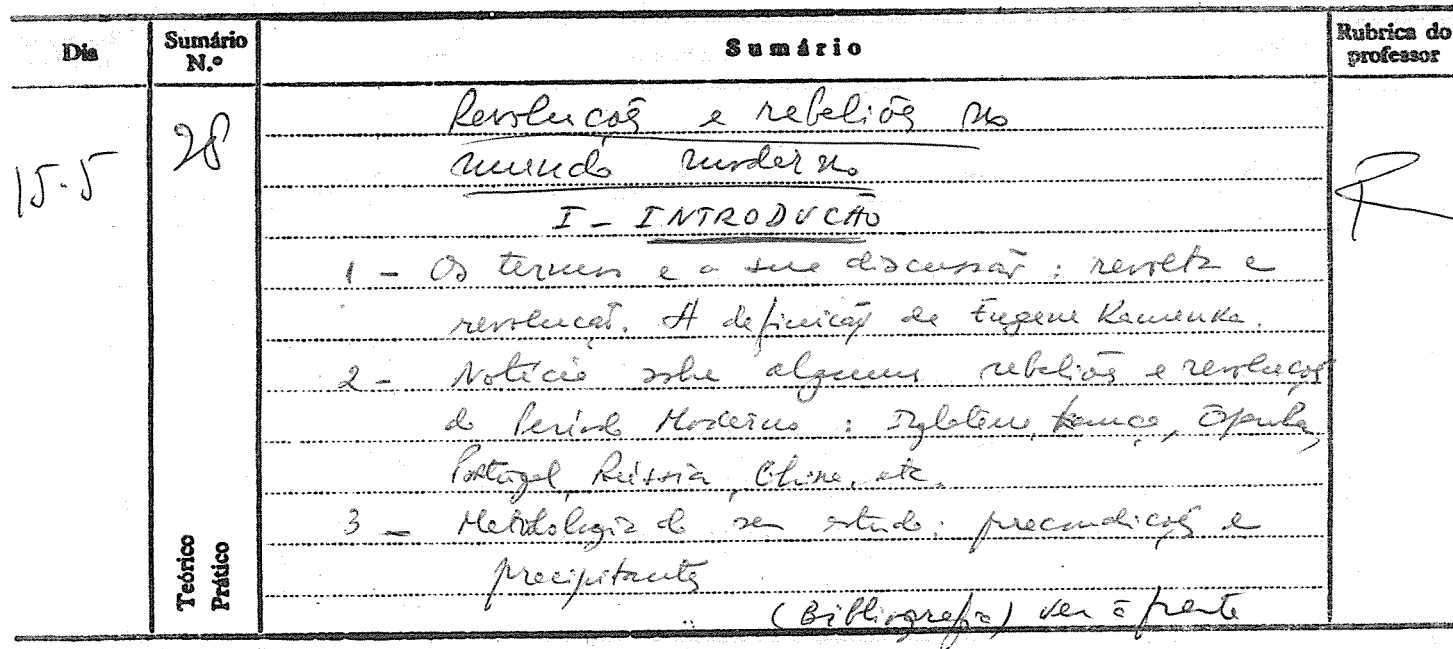 Dia
Sumário N.º
Sumário
Rubrica do professor
15-5
28
Revoluções e rebeliões no
mundo moderno
I - INTRODUÇÃO
1 - Os termos e a sua discussão: revolta e
revolução. A definição de Eugene Kamenka.
2 - Notícia sobre algumas rebeliões e revoluções
do Período Moderno: Inglaterra, França, Espanha,
Portugal, Rússia, China, etc.
3 - Metodologia do seu estudo: precondições e
precipitantes
(Bibliografia) ver à frente
Teórico
Prático